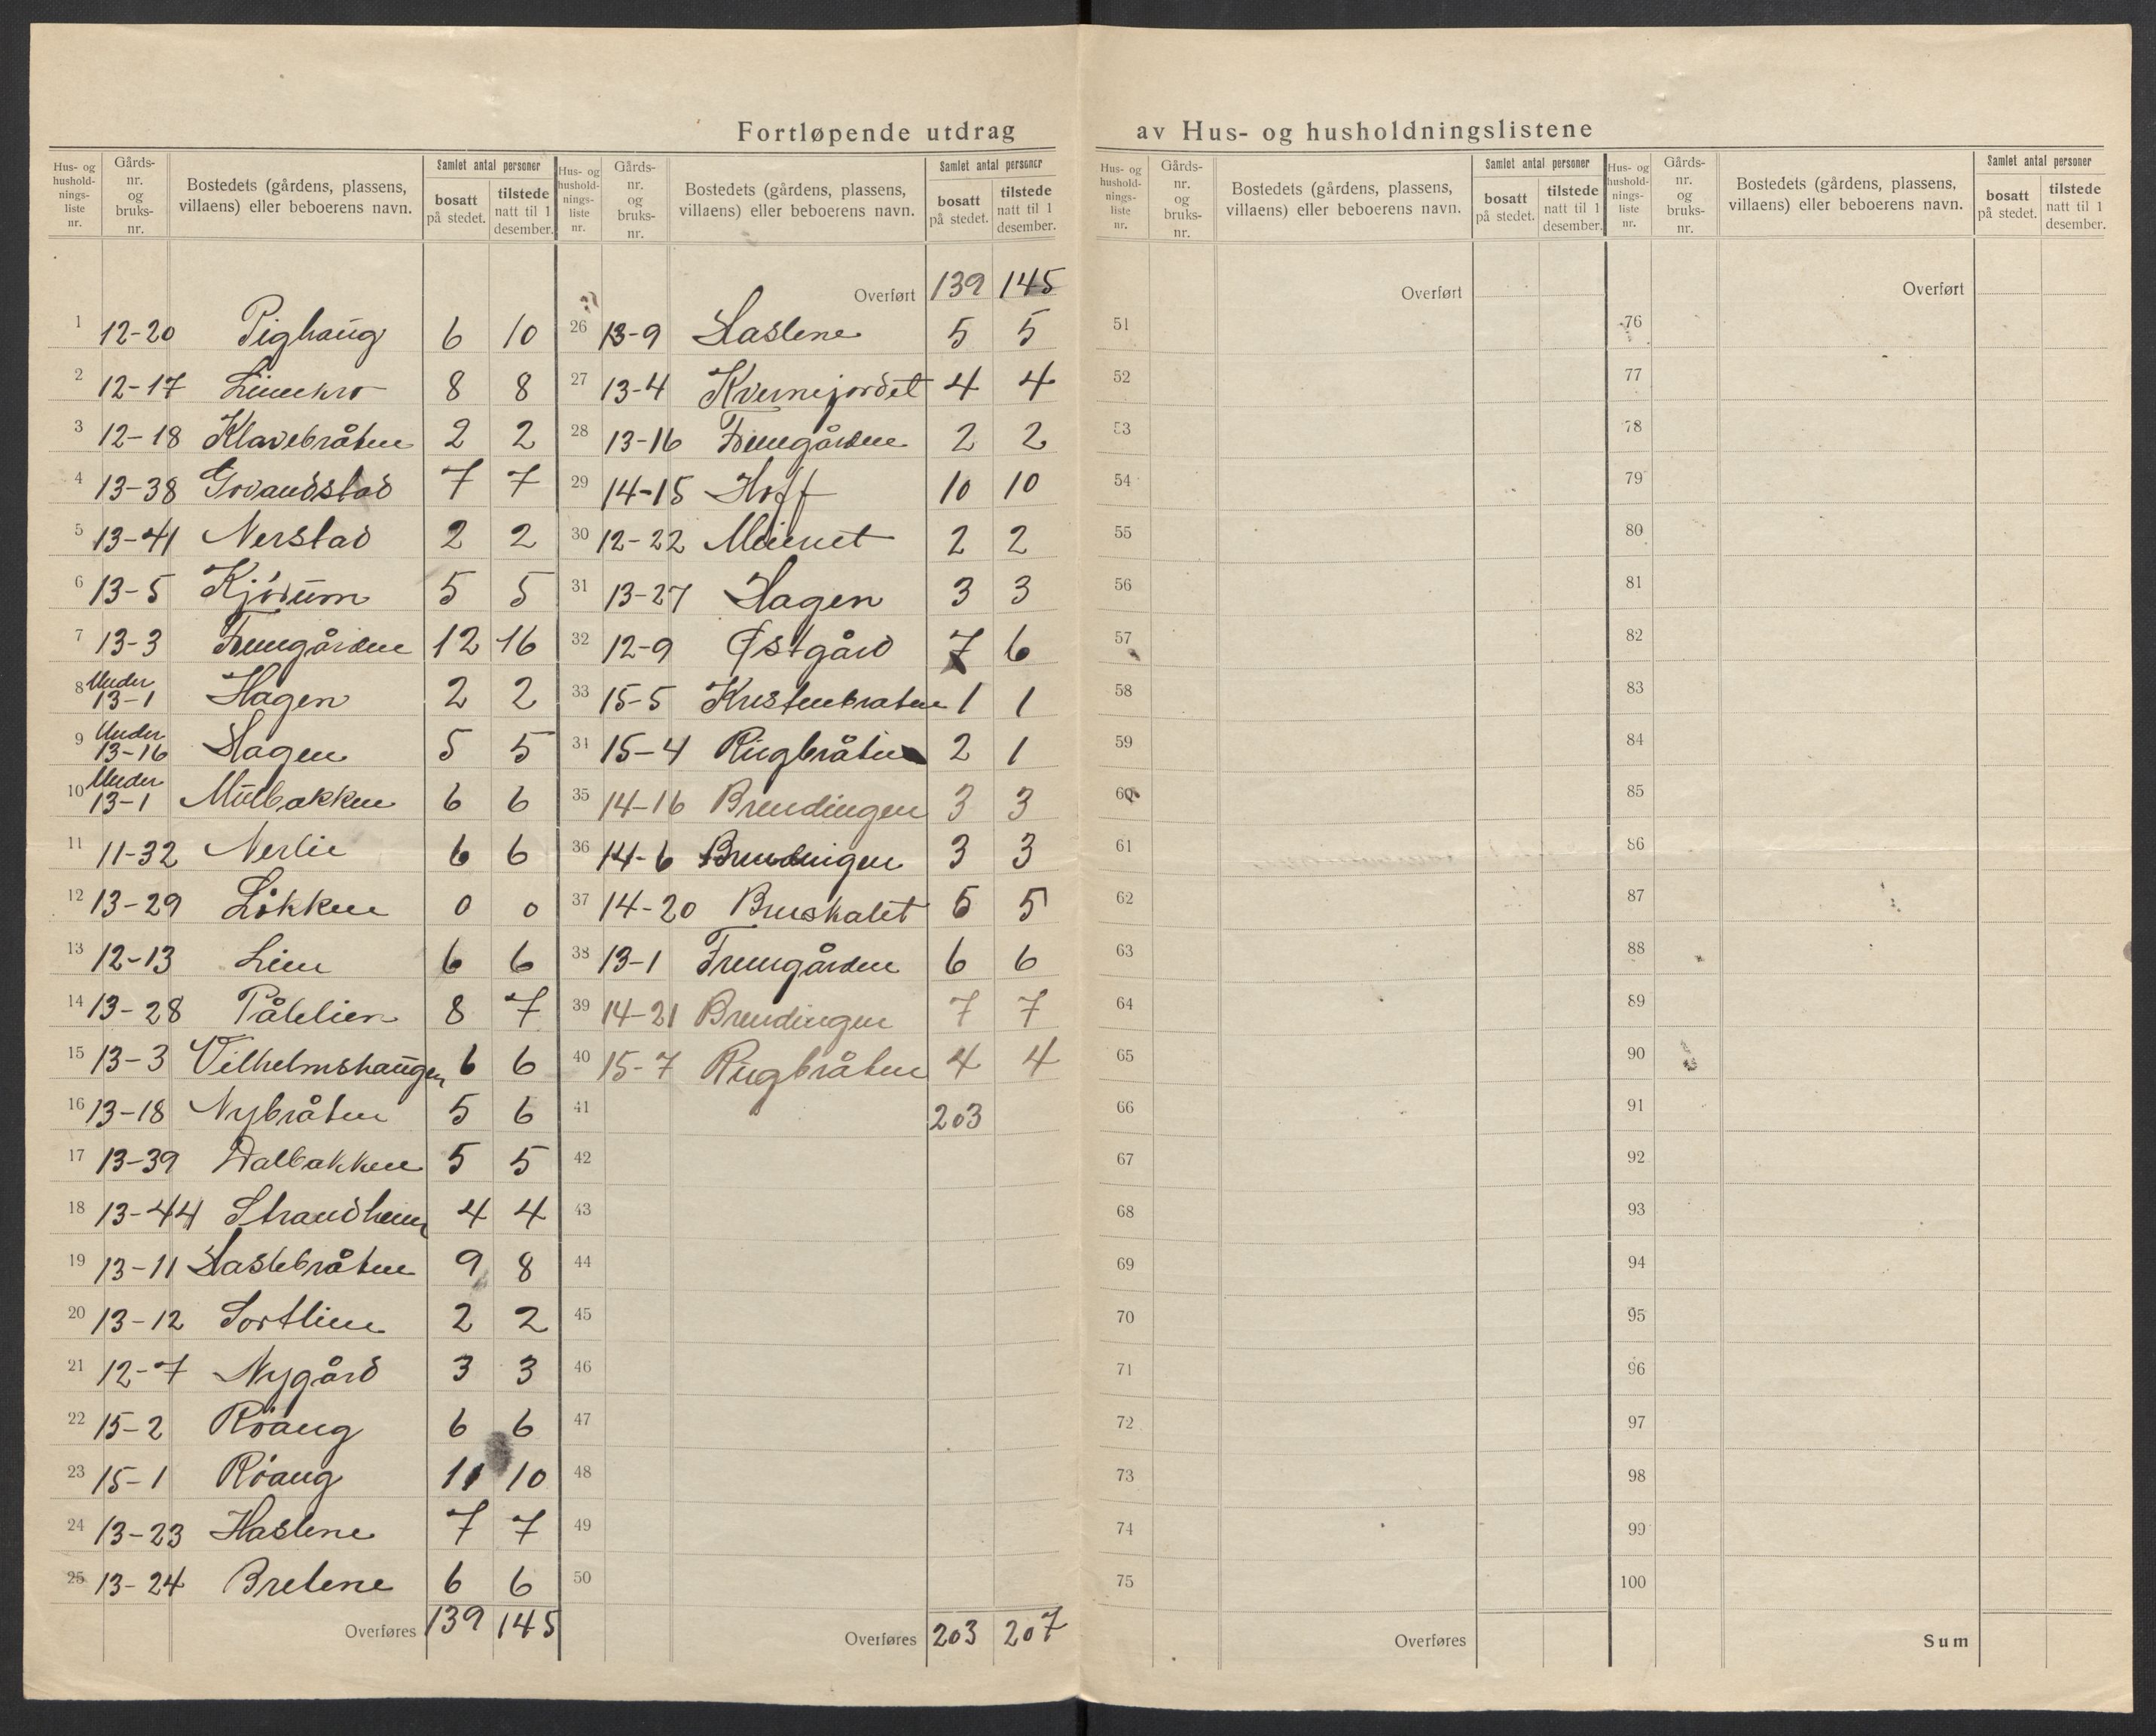 Fortløpende utdrag av Hus- og husholdningslistene
Hus- og hushold-nings-liste nr. Gårds-nr. og bruks-nr. Bostedets (gårdens, plassens, villaens) eller beboerens navn. Samlet antal personer bosatt på stedet. tilstede natt til 1 desember.
1 12-20 Pighaug 6 10
2 12-17 8 8
3 12-18 Klavebråten 2 2
4 13-38 7 7
5 13-41 Nerstad 2 2
6 13-5 Kjørum 5 5
7 13-3 Fremgården 12 16
8 Under 13-1 Hagen 2 2
9 Under 13-16 Hagen 5 5
10 Under 13-1 Mælbakken 6 6
11 11-32 Nerlie 6 6
12 13-29 Løkken 0 0
13 12-13 Lien 6 6
14 13-28 Pålslien 8 7
15 13-3 Vilhelmshaugen 6 6
16 13-18 Nybråten 5 6
17 13-39 Dalbakken 5 5
18 13-44 Strandheim 4 4
19 13-11 Haslebråten 9 8
20 13-12 Sortlien 2 2
21 12-7 Nygård 3 3
22 15-2 Røaug 6 6
23 15-1 Røaug 11 10
24 13-23 Haslene 7 7
25 13-24 Bretene 6 6
Overføres 139 145
Hus- og hushold-nings-liste nr. Gårds-nr. og bruks-nr. Bostedets (gårdens, plassens, villaens) eller beboerens navn. Samlet antal personer bosatt på stedet. tilstede natt til 1 desember.
Overført 139 145
26 13-9 Haslene 5 5
27 13-4 Kvernejordet 4 4
28 13-16 Fremgården 2 2
29 14-15 Hoff 10 10
30 12-22 2 2
31 13-27 Hagen 3 3
32 12-9 Østgård 7 6
33 15-5 Kristenbraten 1 1
34 15-4 Ringbråten 2 1
35 14-16 Brendingen 3 3
36 14-6 Brendingen 3 3
37 14-20 Bruskalet 5 5
38 13-1 Fremgården 6 6
39 14-21 Brendingen 7 7
40 15-7 Ringbråten 4 4
41 203
42
43
44
45
46
47
48
49
50
Overføres 203 207
Hus- og hushold-nings-liste nr. Gårds-nr. og bruks-nr. Bostedets (gårdens, plassens, villaens) eller beboerens navn. Samlet antal personer bosatt på stedet. tilstede natt til 1 desember.
Overført
51
52
53
54
55
56
57
58
59
60
61
62
63
64
65
66
67
68
69
70
71
72
73
74
75
Overføres
Hus- og hushold-nings-liste nr. Gårds-nr. og bruks-nr. Bostedets (gårdens, plassens, villaens) eller beboerens navn. Samlet antal personer bosatt på stedet. tilstede natt til 1 desember.
Overført
76
77
78
79
80
81
82
83
84
85
86
87
88
89
90
91
92
93
94
95
96
97
98
99
100
Sum